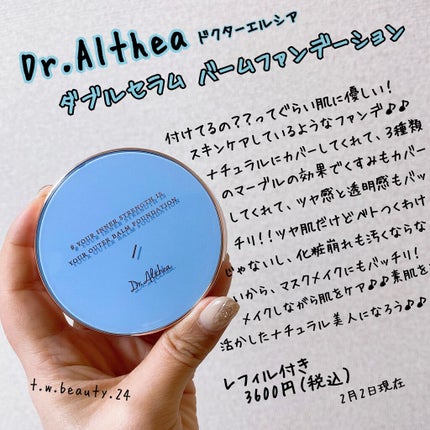 Dr.Althea ドクターエルシア
ダブルセラム バームファンデーション
付けてるの??ってぐらい肌に優しい!
スキンケアしているようなファンデ♪♪
ナチュラルにカバーしてくれて、3種類
のマーブルの効果でくすみもカバー
してくれて、ツヤ感と透明感もバッ
チリ!!ツヤ肌だけどベトつくわけ
じゃないし、化粧崩れも汚くならな
いから、マスクメイクにもバッチリ!
メイクしながら肌をケア♪♪素肌を
活かしたナチュラル美人になろう♪♪
レフィル付き
3600円(税込)
2月2日現在
& YOUR INNER STRENGTH IS
YOUR OUTER BALM FOUNDATION
Dr. Althea
t.w.beauty.24